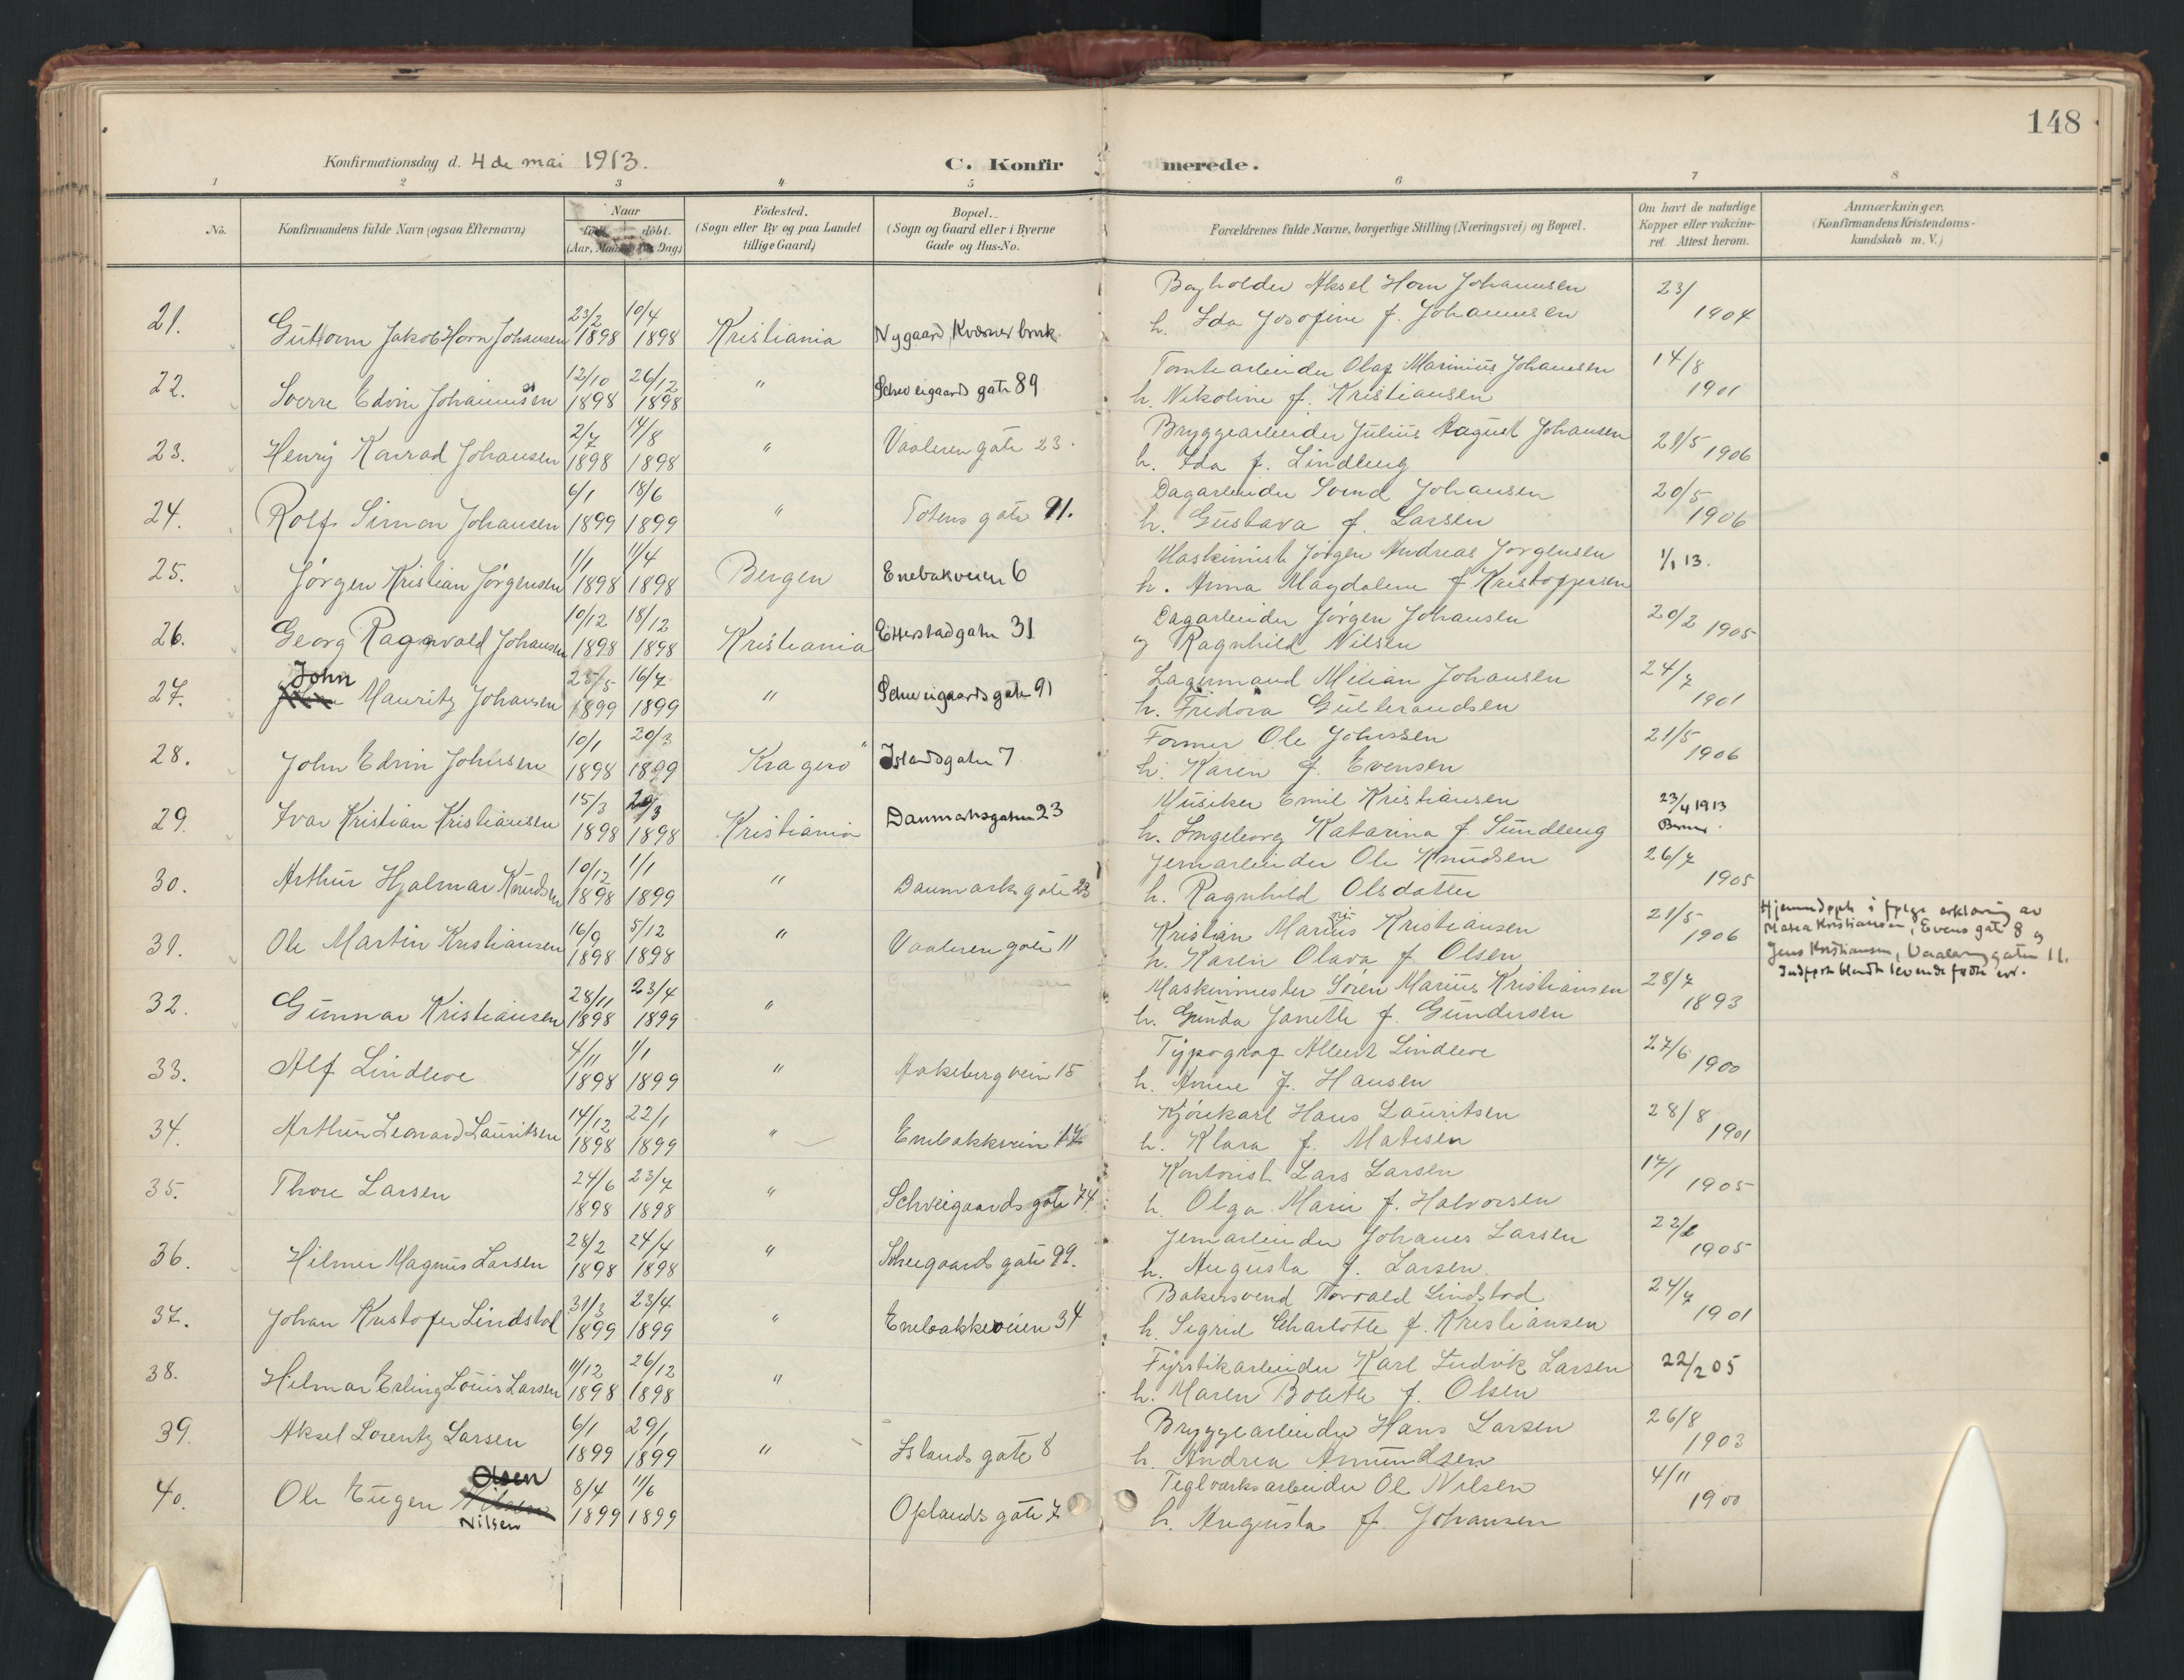 148
Konfirmationsdag d. 4 de mai 1913. C. Konfirmerede.
1 2 3 4 5 6 7 8
No. Konfirmandens fulde Navn (ogsaa Efternavn) Naar født døbt. (Aar, Dag) Födested. (Sogn eller By og paa Landet tillige Gaard) Bopæl. (Sogn og Gaard eller i Byerne Gade og Hus-No. Forældrenes fulde Navne, borgerlige Stilling (Næringsvei) og Bopæl. Om havt de naturlige Kopper eller vakcineret. Attest herom. Anmærkninger. (Konfirmandens Kristendomskundskab m. V.)
Bogholder Aksel Horn Johannesen 23/
21. Guttorm Jakob Horn Johansen 23/2 1898 10/4 1898 Kristiania Nygaard, Kværner bruk h. Ida Josofine f. Johannesen 1904
Tomtearbeider Olaf Marinius Johansen 14/8
22. Sverre Edvin Johannesen 12/10 1898 26/12 1898 " Schweigaards gate 89 h. Nikoline f. Kristiansen 1901
Bryggearbeider Julius August Johansen
23. Henry Konrad Johansen 2/7 1898 14/8 1898 " Vaaleren gate 23. h. Ida f. Lindberg 21/5 1906
Dagarbeider Svend Johansen 20/5
24. Rolf Simon Johansen 6/1 1899 18/6 1899 " Totens gate 91. h. Gustava f. Larsen 1906
Maskinist Jørgen Andreas Jørgensen
25. Jørgen Kristian Jørgensen 1/1 1898 11/4 1898 Bergen Enebakveien 6 h. Anna Magdalene f. Kristoffersen 1/1 13.
Dagarbeider Jørgen Johansen
26. Georg Ragnvald Johansen 10/12 1898 18/12 1898 Kristiania Etterstadgaten 31 og Ragnhild Nilsen 20/2 1905
John Lagermand Milian Johansen 24/7
27. Mauritz Johansen 25/5 1899 16/7 1899 " Schweigaards gate 91 h. Fredora Gulbrandsen 1901
Former Ole Johnsen 21/5
28. John Edvin Johnsen 10/1 1898 20/3 1899 Kragerø Islandsgaten 7 h. Karen f. Evensen 1906
Musiker Emil Kristiansen 23/4 1913
29. Ivar Kristian Kristiansen 15/3 1898 1898 Kristiania Danmarksgaten 23 h. Ingeborg Katarina f. Sundberg
Jernarbeider Ole Knudsen 26/7
30. Arthur Hjalmar Knudsen 10/12 1898 1/1 1899 " Danmarks gate 23 h. Ragnhild Olsdatter 1905
Kristian Marius Kristiansen 21/5
31. Ole Martin Kristiansen 16/9 1898 5/12 1898 " Vaaleren gate 11 h. Karen Olava f. Olsen 1906
Hjemmdøpt i følge erklæring av
Maria Kristiansen, Evens gate 8 og
Jens Kristiansen, Vaalerenggaten 11.
Indført blandt levende fødte
Maskinmester Søren Marius Kristiansen 28/7
32. Gunnar Kristiansen 28/11 1898 23/4 1899 " h. Gunda Janette f. Gundersen 1893
Typograf Albert Lindboe 27/6
33. Alf Lindboe 4/11 1898 1/1 1899 " Aakeberg vein 15 h. Anne f. Hansen 1900
Kjørekarl Hans Lauritsen 28/8
34. Arthur Leonard Lauritsen 14/12 1898 22/1 1899 " Enebakkvein 17 h. Klara f. Matisen 1901
Kontorist Lars Larsen 17/1
35. Thore Larsen 24/6 1898 23/7 1898 " Schweigaards gate 74. h. Olga Marie f. Halvorsen 1905
Jernarbeider Johanes Larsen 22/2
36. Hilmer Magnus Larsen 28/2 1898 24/4 1898 " Schwegaards gate 99. h. Augusta f. Larsen. 1905
Bakersvend Torvald Lindstad 24/7
37. Johan Kristofer Lindstad 31/3 1899 23/4 1899 " Enebakkeveien 34 h. Sigrid Charlotte f. Kristiansen 1901
Fyrstikarbeider Karl Ludvik Larsen
38. Hilmar Erling Louis Larsen 11/12 1898 26/12 1898 " h. Maren Bolette f. Olsen 22/2 05
Bryggearbeider Hans Larsen 26/8
39. Aksel Lorentz Larsen 6/1 1899 29/1 1899 " Islands gate 8 h. Andrea Amundsen 1903
Olsen Teglværksarbeider Ole Nilsen 4/11
40. Ole Eugen Nilsen 8/4 1899 11/6 1899 Oplands gate 7 h. Augusta f. Johansen 1900